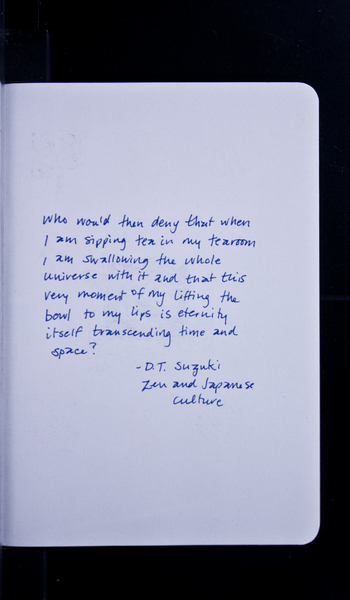 Who would then deny that when
I am sipping tea in my tearoom
I am swallowing the whole
universe with it and that this
very moment of my lifting the
bowl to my lips is eternity
itself transcending time and
space?
-D.T. Suzuki
Zen and Japanese
Culture